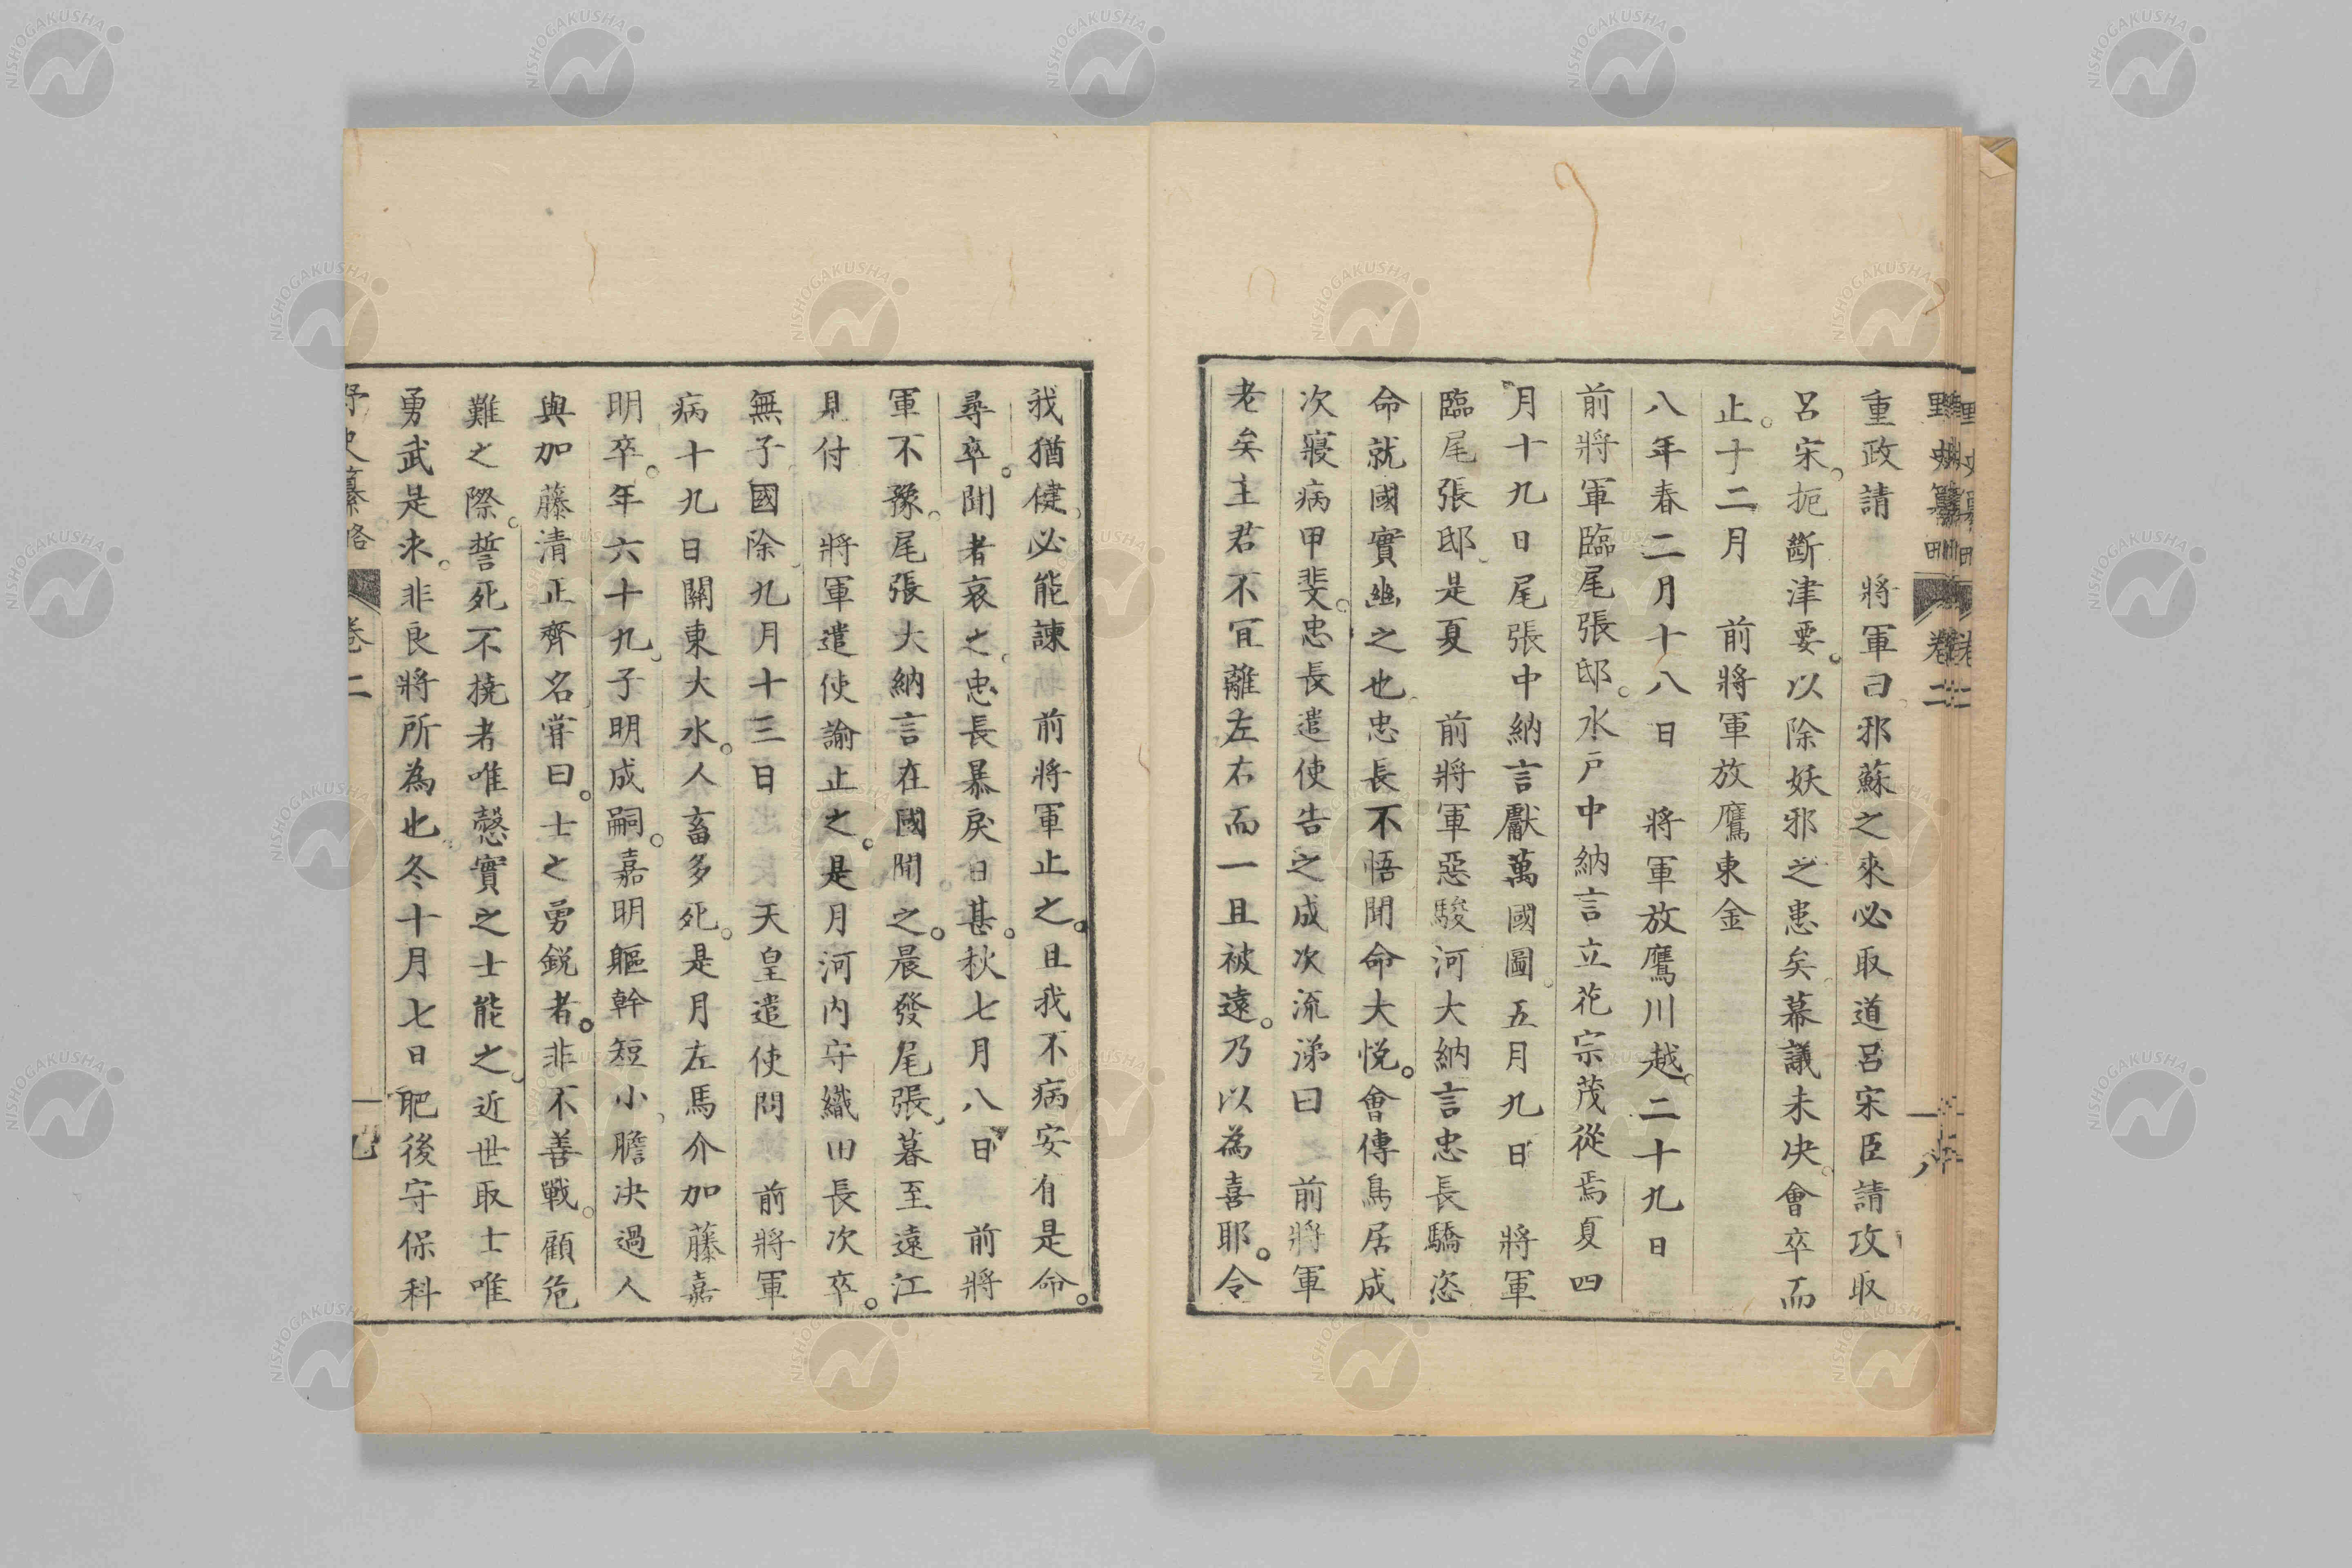 重政請　將軍曰邪蘇之來必取道呂宋臣請攻取
呂宋。扼斷津要。以除妖邪之患矣。幕議未决。會卒而
止。十二月　前將軍放鷹東金
八年春二月十八日　將軍放鷹川越。二十九日
前將軍臨尾張邸。水戸中納言立花宗茂從焉夏四
月十九日尾張中納言獻萬國圖。五月九日　將軍
臨尾張邸。是夏　前將軍惡駿河大納言忠長驕恣
命就國實幽之也。忠長不悟聞命大悦。會傳鳥居成
次寢病甲斐。忠長遣使告之成次流涕曰　前將軍
老矣主君不冝離左右而一旦被遠。乃以為喜耶。令
我猶健。必能諫　前將軍止之。且我不病安有是命。
尋卒。聞者哀之。忠長暴戾日甚。秋七月八日　前將
軍不豫。尾張大納言在國聞之。晨發尾張。暮至遠江
見付　將軍遣使諭止之。是月河内守織田長次卒。
無子。國除。九月十三日　天皇遣使問　前將軍
病十九日關東大水。人畜多死。是月左馬介加藤嘉
明卒。年六十九。子明成嗣。嘉明軀幹短小。膽决過人
與加藤清正齊名。嘗曰。士之勇鋭者。非不善戰。顧危
難之際。誓死不撓者唯愨實之士能之。近世取士唯
勇武是求。非良將所為也。冬十月七日肥後守保科
野史纂略　卷二
NISHOGAKUSHA